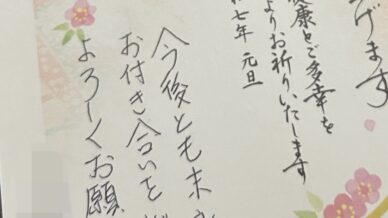 げます
康とご多幸を
よりお祈りいたします
七年 元旦
今後とも末
お付き合いを
よろしくお願